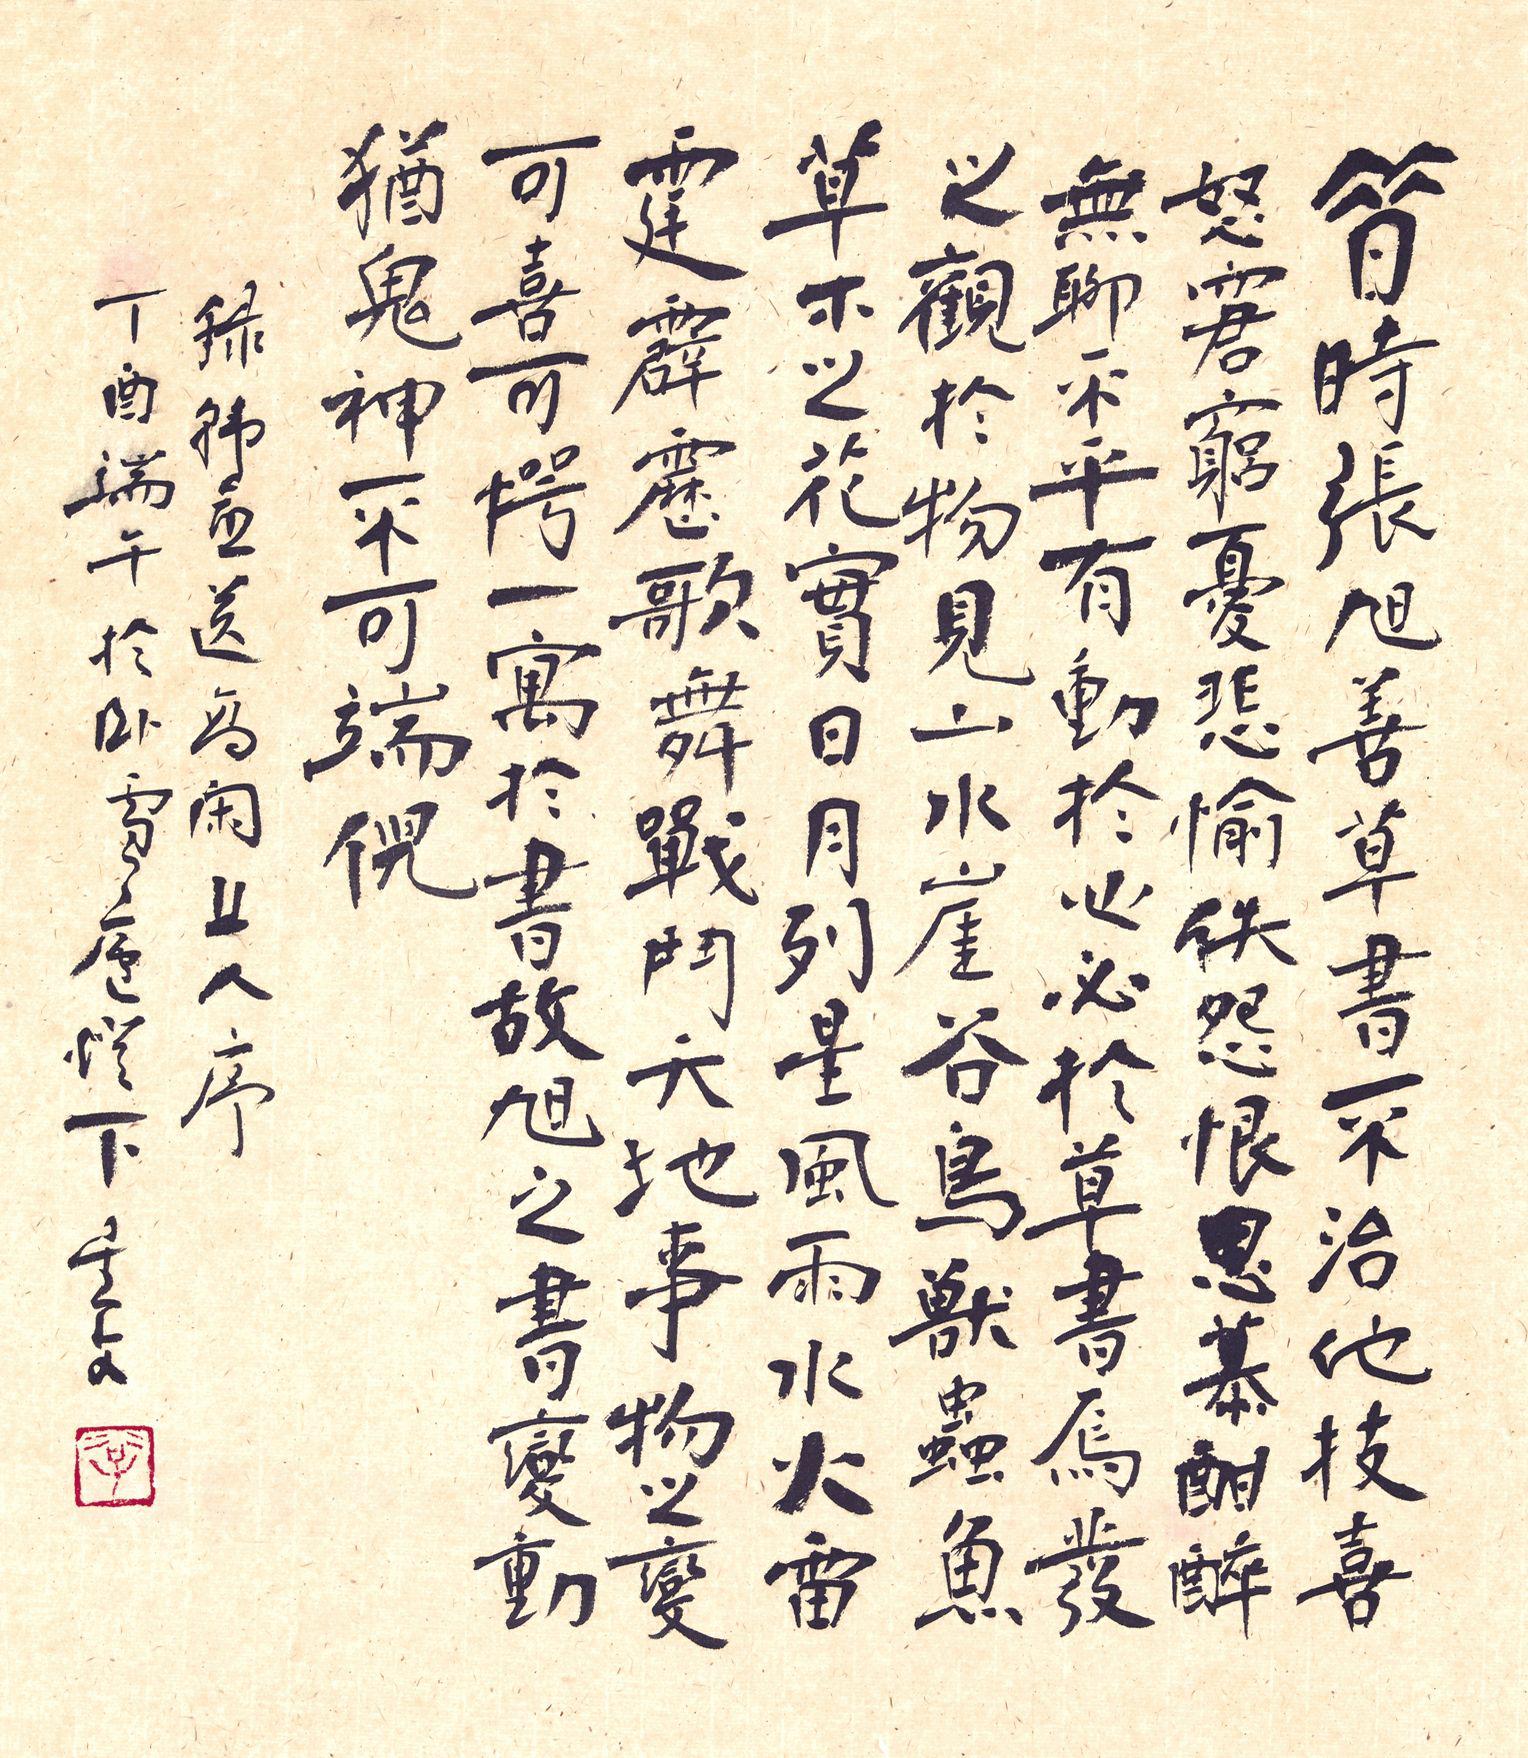 昔時張旭善草書不治他技喜
怒窘窮憂悲愉佚怨恨思慕酣醉
無聊不平有動於心必於草書焉發
之觀於物見山水崖谷鳥獸蟲魚
草木之花實日月列星風雨水火雷
霆霹靂歌舞戰鬥天地事物之變
可喜可愕一寓於書故旭之書變動
猶鬼神不可端倪
錄韓愈送高閑上人序
丁酉端午於卧雪廬燈下